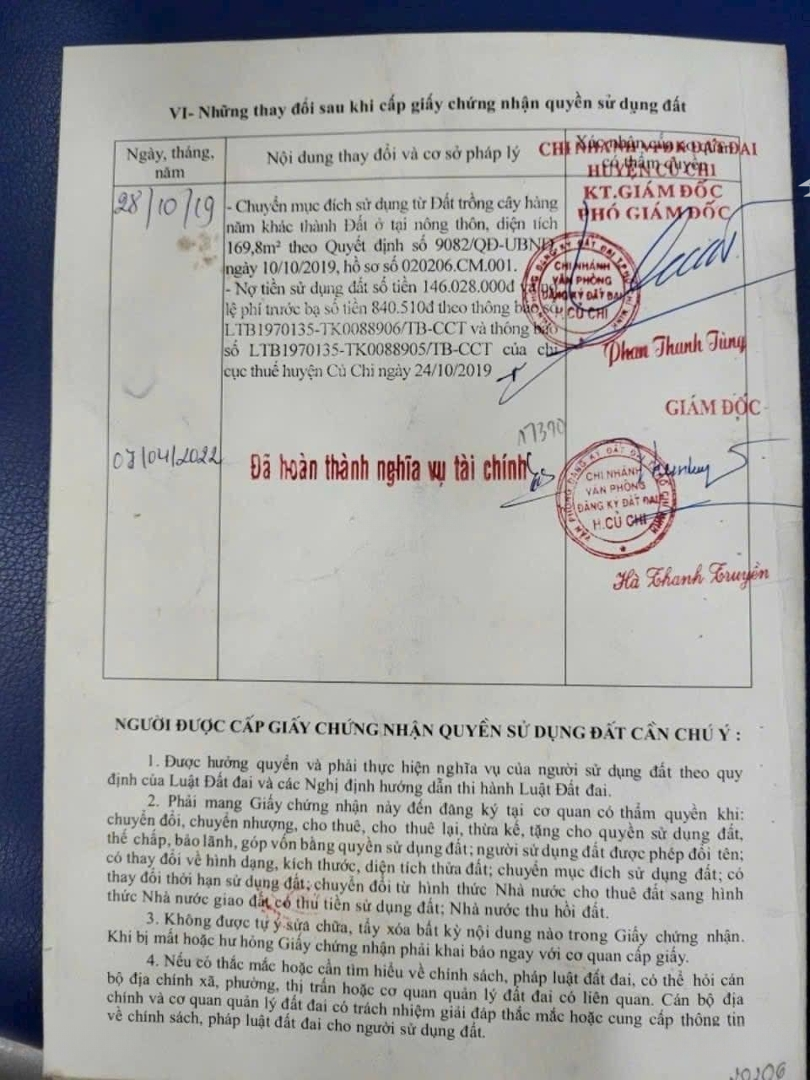 VI- Những thay đổi sau khi cấp giấy chứng nhận quyền sử dụng đất
Ngày, tháng, năm
Nội dung thay đổi và cơ sở pháp lý
Xác nhận của cơ quan có thẩm quyền
CHI NHÁNH VPĐK ĐẤT ĐAI
HUYỆN CỦ CHI
KT.GIÁM ĐỐC
PHÓ GIÁM ĐỐC
28/10/19
- Chuyển mục đích sử dụng từ Đất trồng cây hàng
năm khác thành Đất ở tại nông thôn, diện tích
169,8m² theo Quyết định số 9082/QĐ-UBND
ngày 10/10/2019, hồ sơ số 020206.CM.001.
- Nợ tiền sử dụng đất số tiền 146.028.000đ và nợ
lệ phí trước bạ số tiền 840.510đ theo thông báo số
LTB1970135-TK0088906/TB-CCT và thông báo
số LTB1970135-TK0088905/TB-CCT của chi
cục thuế huyện Củ Chi ngày 24/10/2019
CHI NHÁNH
VĂN PHÒNG
ĐĂNG KÝ ĐẤT ĐAI
H.CỦ CHI
Phan Thanh Tùng
07/04/2022
Đã hoàn thành nghĩa vụ tài chính
N7390
GIÁM ĐỐC
CHI NHÁNH
VĂN PHÒNG
ĐĂNG KÝ ĐẤT ĐAI
H.CỦ CHI
Hà Thanh Truyền
NGƯỜI ĐƯỢC CẤP GIẤY CHỨNG NHẬN QUYỀN SỬ DỤNG ĐẤT CẦN CHÚ Ý :
1. Được hưởng quyền và phải thực hiện nghĩa vụ của người sử dụng đất theo quy
định của Luật Đất đai và các Nghị định hướng dẫn thi hành Luật Đất đai.
2. Phải mang Giấy chứng nhận này đến đăng ký tại cơ quan có thẩm quyền khi:
chuyển đổi, chuyển nhượng, cho thuê, cho thuê lại, thừa kế, tặng cho quyền sử dụng đất,
thế chấp, bảo lãnh, góp vốn bằng quyền sử dụng đất; người sử dụng đất được phép đổi tên;
có thay đổi về hình dạng, kích thước, diện tích thửa đất; chuyển mục đích sử dụng đất; có
thay đổi thời hạn sử dụng đất; chuyển đổi từ hình thức Nhà nước cho thuê đất sang hình
thức Nhà nước giao đất có thu tiền sử dụng đất; Nhà nước thu hồi đất.
3. Không được tự ý sửa chữa, tẩy xóa bất kỳ nội dung nào trong Giấy chứng nhận.
Khi bị mất hoặc hư hỏng Giấy chứng nhận phải khai báo ngay với cơ quan cấp giấy.
4. Nếu có thắc mắc hoặc cần tìm hiểu về chính sách, pháp luật đất đai, có thể hỏi cán
bộ địa chính xã, phường, thị trấn hoặc cơ quan quản lý đất đai có liên quan. Cán bộ địa
chính và cơ quan quản lý đất đai có trách nhiệm giải đáp thắc mắc hoặc cung cấp thông tin
về chính sách, pháp luật đất đai cho người sử dụng đất.